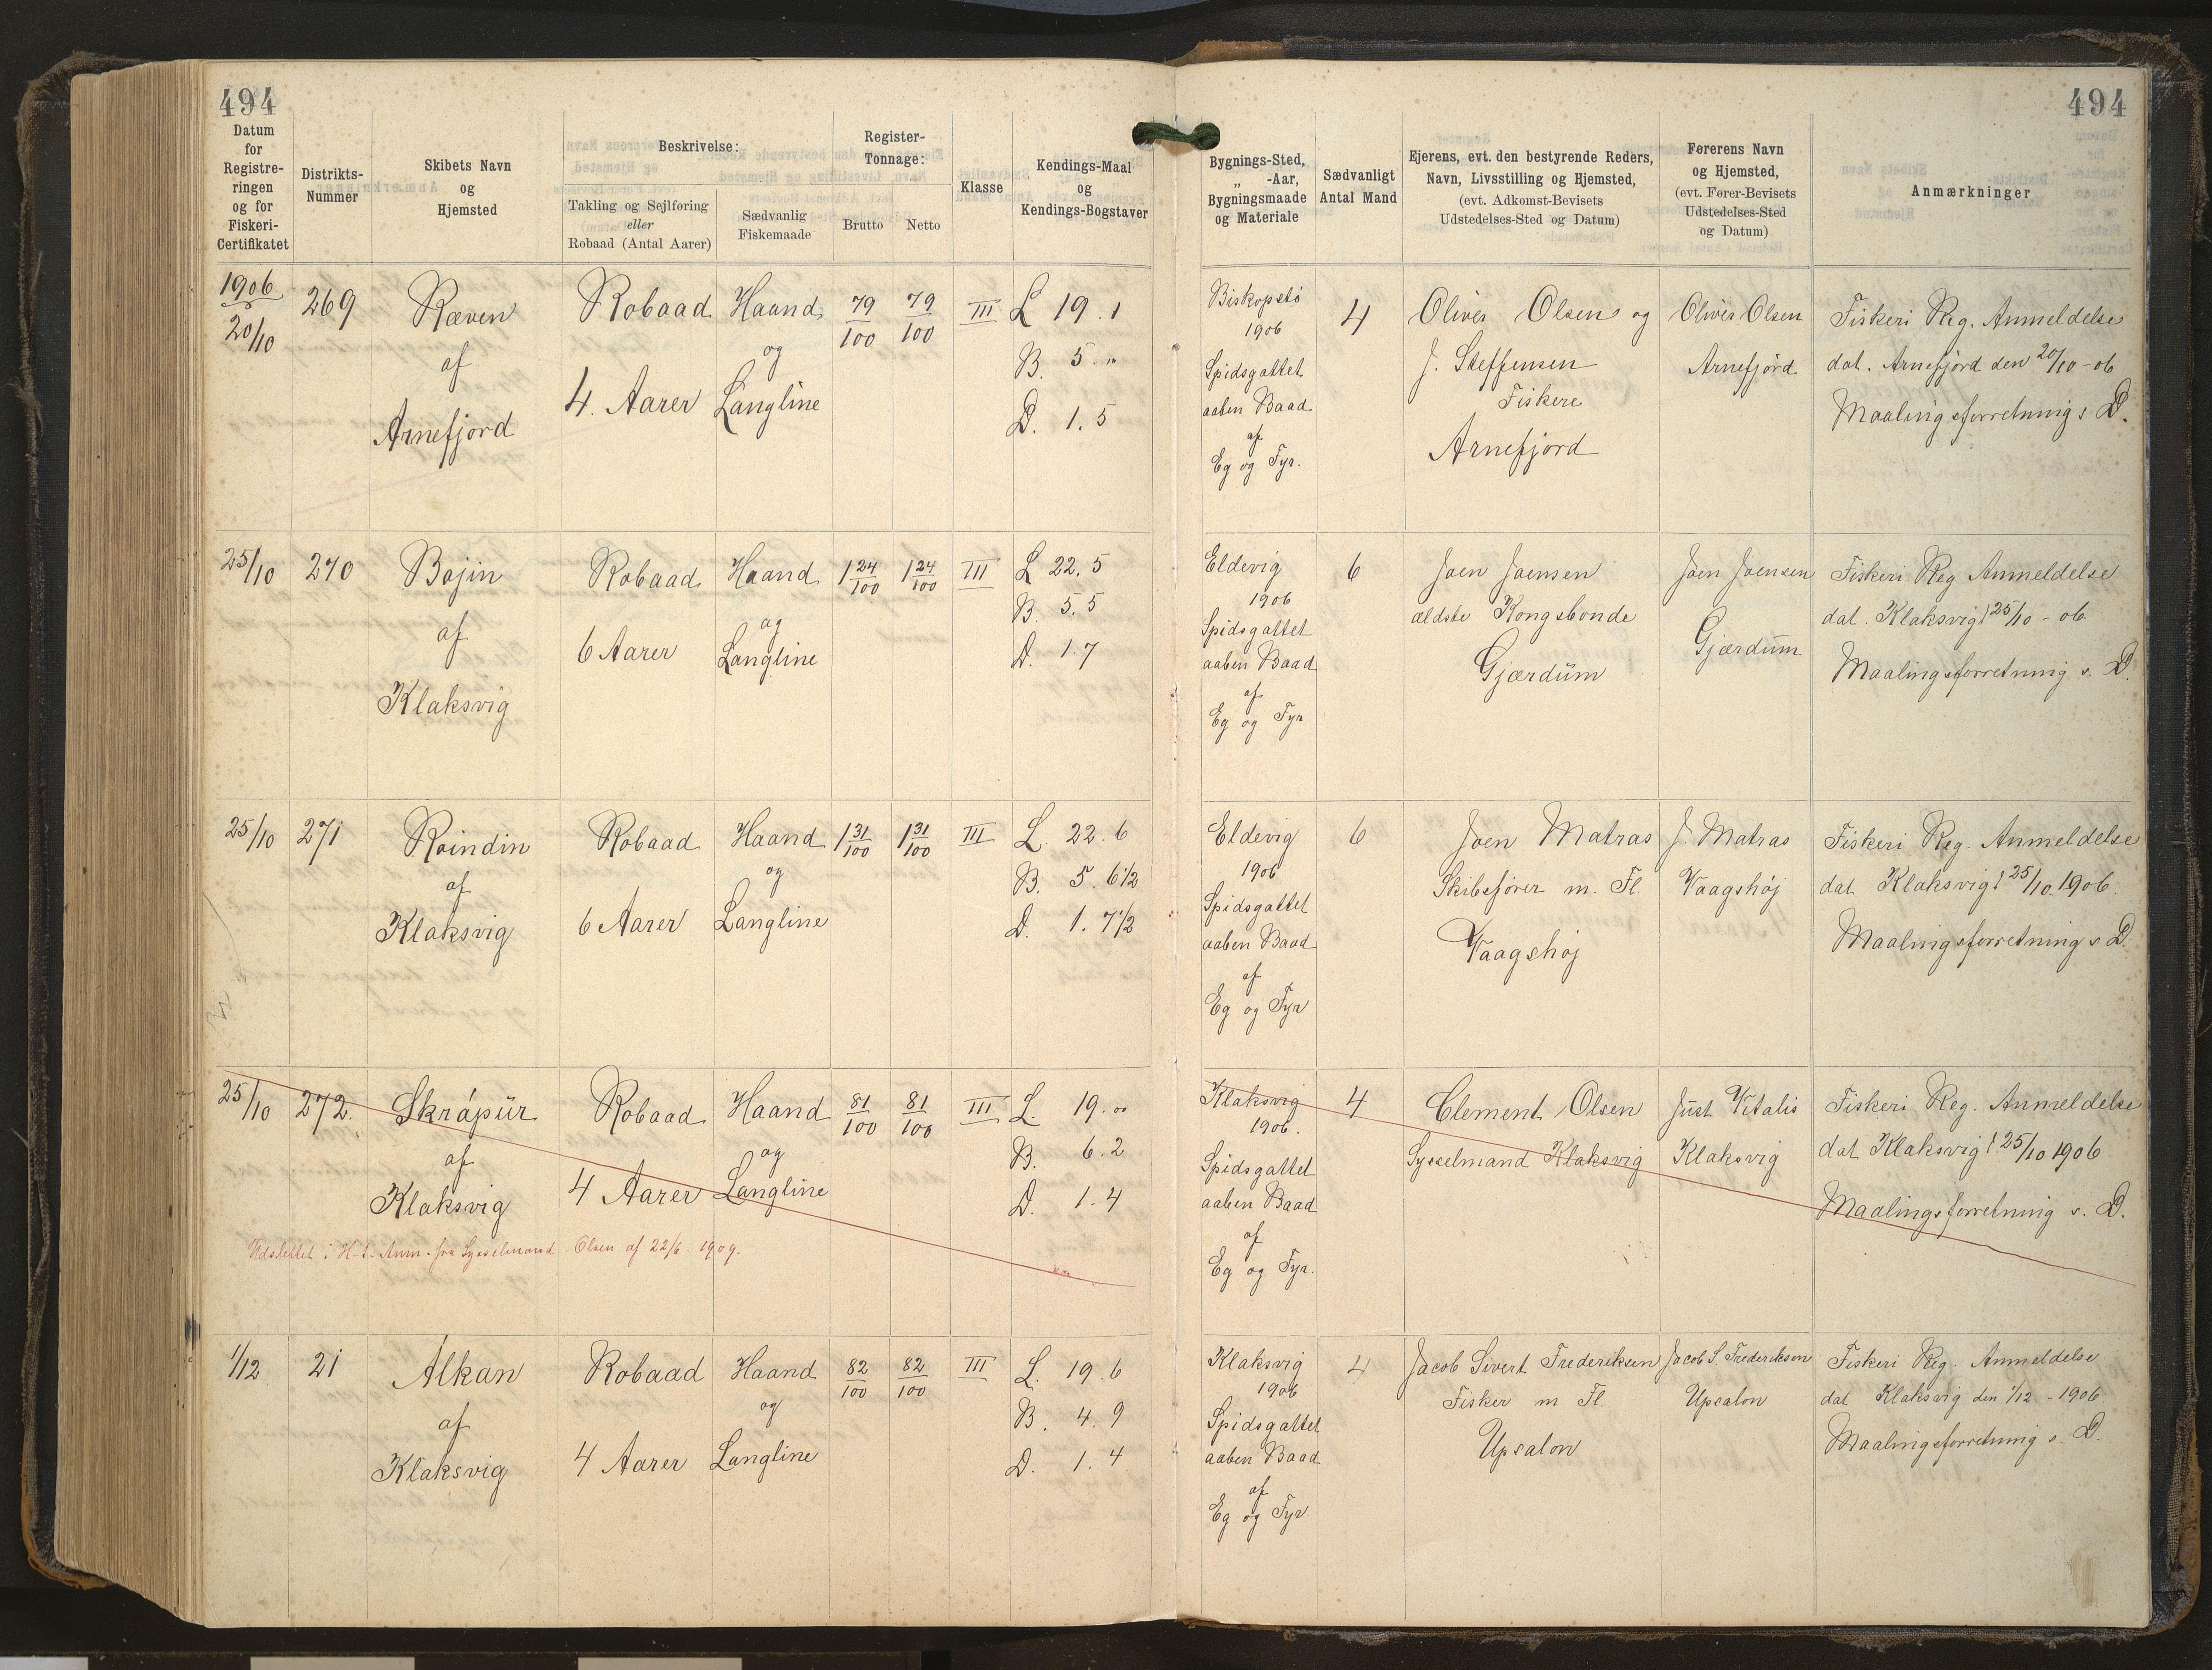 494
494
Datum for Registreringen og for Fiskeri-Certifikatet
Distrikts-Nummer
Skibets Navn og Hjemsted
Beskrivelse:
Takling og Sejlføring eller Robaad (Antal Aarer)
Sædvanlig Fiskemaade
Register-Tonnage:
Brutto
Netto
Klasse
Kendings-Maal og Kendings-Bogstaver
Bygnings-Sted, „ -Aar, Bygningsmaade og Materiale
Sædvanligt Antal Mand
Ejerens, evt. den bestyrende Reders, Navn, Livsstilling og Hjemsted, (evt. Adkomst-Bevisets Udstedelses-Sted og Datum)
Førerens Navn og Hjemsted, (evt. Fører-Bevisets Udstedelses-Sted og Datum)
Anmærkninger
1906
20/10
269
Ræven
af
Arnefjord
Robaad
4. Aarer
Haand
og
Langline
79/100
79/100
III
L 19. 1
B. 5. "
D. 1. 5
Biskopstö
1906
Spidsgattet
aaben Baad
af
Eg og Fyr.
4
Oliver Olsen og
J. Steffensen
Fiskere
Arnefjord
Oliver Olsen
Arnefjord
Fiskeri Reg. Anmeldelse
dat. Arnefjord den 20/10 - 06
Maalingsforretning s. D.
25/10
270
Bojin
af
Klaksvig
Robaad
6 Aarer
Haand
og
Langline
1 24/100
1 24/100
III
L 22. 5
B. 5. 5
D. 1. 7
Eldevig
1906
Spidsgattet
aaben Baad
af
Eg og Fyr
6
Joen Joensen
ældste Kongsbonde
Gjærdüm
Joen Joensen
Gjærdüm
Fiskeri Reg Anmeldelse
dat. Klaksvig 25/10 - 06
Maalingsforretning s. D.
25/10
271
Roindin
af
Klaksvig
Robaad
6 Aarer
Haand
og
Langline
1 31/100
1 31/100
III
L 22. 6
B. 5. 6 1/2
D. 1. 7 1/2
Eldevig
1906
Spidsgattet
aaben Baad
af
Eg og Fyr
6
Joen Matras
Skibsfører m. Fl.
Vaagshøj
J. Matras
Vaagshøj
Fiskeri Reg. Anmeldelse
dat Klaksvig 25/10. 1906.
Maalingsforretning s D.
25/10
272.
Skrápür
af
Klaksvig
Robaad
4 Aarer
Haand
og
Langline
81/100
81/100
III
L. 19. "
B. 6. 2
D. 1. 4
Udslettet i H-t. Anm. fra Sysselmand Olsen af 22/6 1909.
Klaksvig
1906.
Spidsgattet
aaben Baad
af
Eg og Fyr.
4
Clement Olsen
Sysselmand Klaksvig
Just Vitalis
Klaksvig
Fiskeri Reg. Anmeldelse
dat Klaksvig 25/10 1906
Maalingsforretning s. D.
1/12
21
Álkan
af
Klaksvig
Robaad
4 Aarer
Haand
og
Langline
82/100
82/100
III
L. 19. 6
B. 4. 9
D. 1. 4
Klaksvig
1906
Spidsgattet
aaben Baad
af
Eg og Fyr
4
Jacob Sivert Frederiksen
Fisker m Fl.
Upsalon
Jacob S. Frederiksen
Upsalon
Fiskeri Reg. Anmeldelse
dat Klaksvig den 1/12 - 1906.
Maalingsforretning s. D.